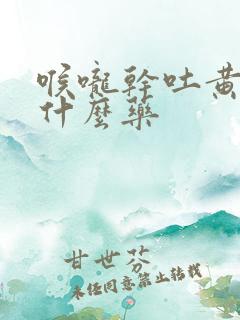 喉嚨幹吐黃
什麼藥
甘世芬
未經同意禁止轉載